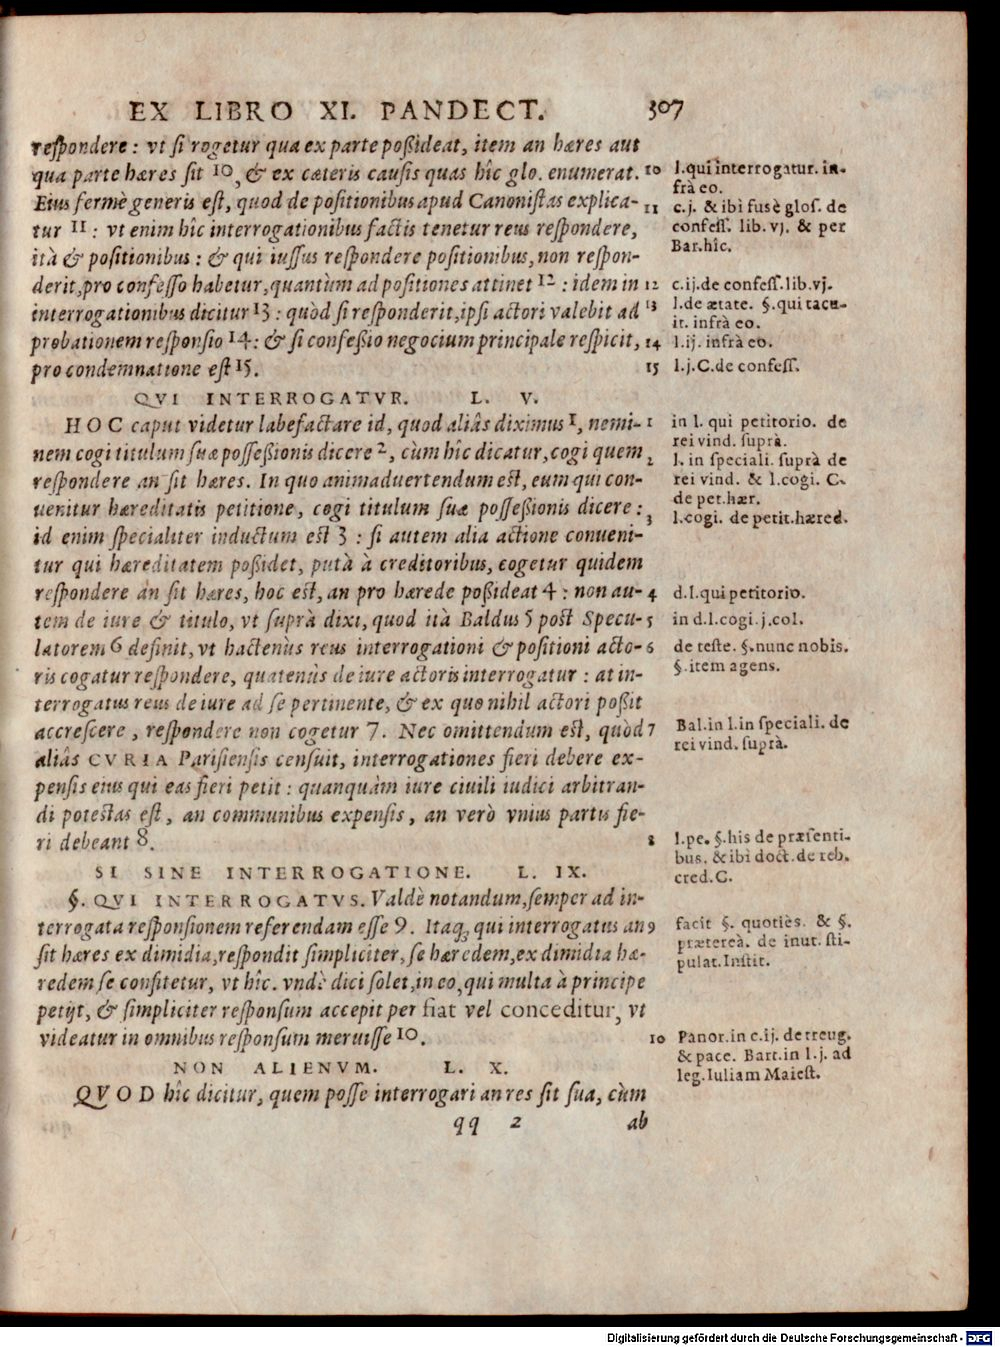 EX LIBRO XI. PANDECT. 307
respondere: vt si rogetur qua ex parte possideat, item an hæres aut
qua parte hæres sit 10, & ex cæteris causis quas hîc glo. enumerat.
Eius fermè generis est, quod de positionibus apud Canonistas explica-
tur 11: vt enim hîc interrogationibus factis tenetur reus respondere,
ità & positionibus: & qui iussus respondere positionibus, non respon-
derit, pro confesso habetur, quantùm ad positiones attinet 12: idem in
interrogationibus dicitur 13: quòd si responderit, ipsi actori valebit ad
probationem responsio 14: & si confessio negocium principale respicit,
pro condemnatione est 15.
10 l. qui interrogatur. in-
frà eo.
11 c.j. & ibi fusè glos. de
confess. lib. vj. & per
Bar. hîc.
12 c.ij. de confess. lib. vj.
13 l. de ætate. §. qui tacu-
it. infrà eo.
14 l.ij. infrà eo.
15 l.j. C. de confess.
QVI INTERROGATVR. L. V.
HOC caput videtur labefactare id, quod aliâs diximus 1, nemi-
nem cogi titulum suæ possessionis dicere 2, cùm hîc dicatur, cogi quem
respondere an sit hæres. In quo animaduertendum est, eum qui con-
uenitur hæreditatis petitione, cogi titulum suæ possessionis dicere:
id enim specialiter inductum est 3: si autem alia actione conueni-
tur qui hæreditatem possidet, putà à creditoribus, cogetur quidem
respondere an sit hæres, hoc est, an pro hærede possideat 4: non au-
tem de iure & titulo, vt suprà dixi, quod ità Baldus 5 post Specu-
latorem 6 definit, vt hactenùs reus interrogationi & positioni acto-
ris cogatur respondere, quatenùs de iure actoris interrogatur: at in-
terrogatus reus de iure ad se pertinente, & ex quo nihil actori possit
accrescere, respondere non cogetur 7. Nec omittendum est, quòd
aliâs CVRIA Parisiensis censuit, interrogationes fieri debere ex-
pensis eius qui eas fieri petit: quanquàm iure ciuili iudici arbitran-
di potestas est, an communibus expensis, an verò vnius partis fie-
ri debeant 8.
1 in l. qui petitorio. de
rei vind. suprà.
2 l. in speciali. suprà de
rei vind. & l. cogi. C.
de pet. hær.
3 l. cogi. de petit. hæred.
4 d. l. qui petitorio.
5 in d. l. cogi. j. col.
6 de teste. §. nunc nobis.
§. item agens.
7 Bal. in l. in speciali. de
rei vind. suprà.
8 l. pe. §. his de præsenti-
bus. & ibi doct. de reb.
cred. C.
SI SINE INTERROGATIONE. L. IX.
§. QVI INTERROGATVS. Valdè notandum, semper ad in-
terrogata responsionem referendam esse 9. Itaq; qui interrogatus an
sit hæres ex dimidia, respondit simpliciter, se hæredem, ex dimidia hæ-
redem se confitetur, vt hîc. vndè dici solet, in eo, qui multa à principe
petijt, & simpliciter responsum accepit per fiat vel conceditur, vt
videatur in omnibus responsum meruisse 10.
9 facit §. quotiès. & §.
prætereà. de inut. sti-
pulat. Instit.
10 Panor. in c.ij. de treug.
& pace. Bart. in l.j. ad
leg. Iuliam Maiest.
NON ALIENVM. L. X.
QVOD hîc dicitur, quem posse interrogari an res sit sua, cùm
qq 2 ab
Digitalisierung gefördert durch die Deutsche Forschungsgemeinschaft - DFG